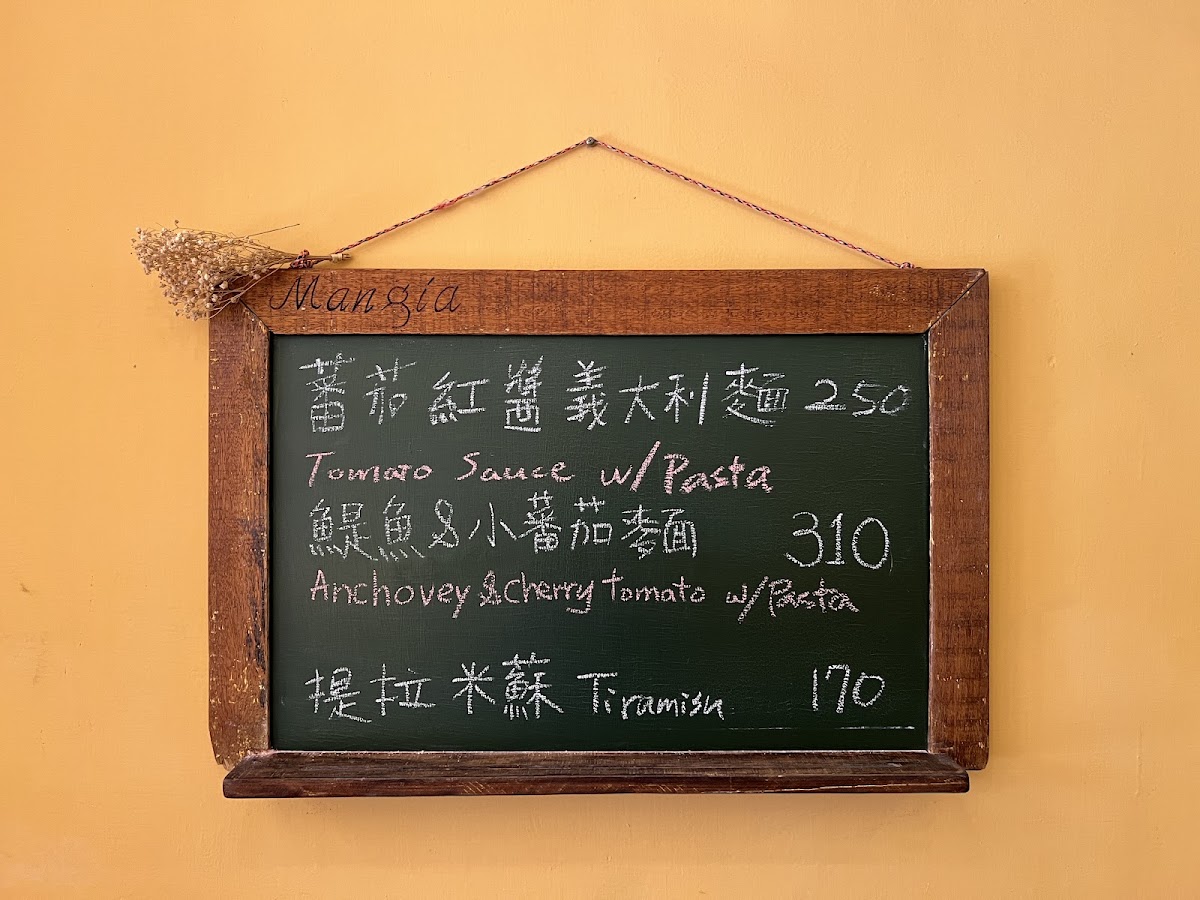 Mangia
蕃茄紅醬義大利麵 250
Tomato Sauce w/Pasta
鯷魚&小蕃茄麵 310
Anchovey & Cherry Tomato w/Pasta
提拉米蘇 Tiramisu 170